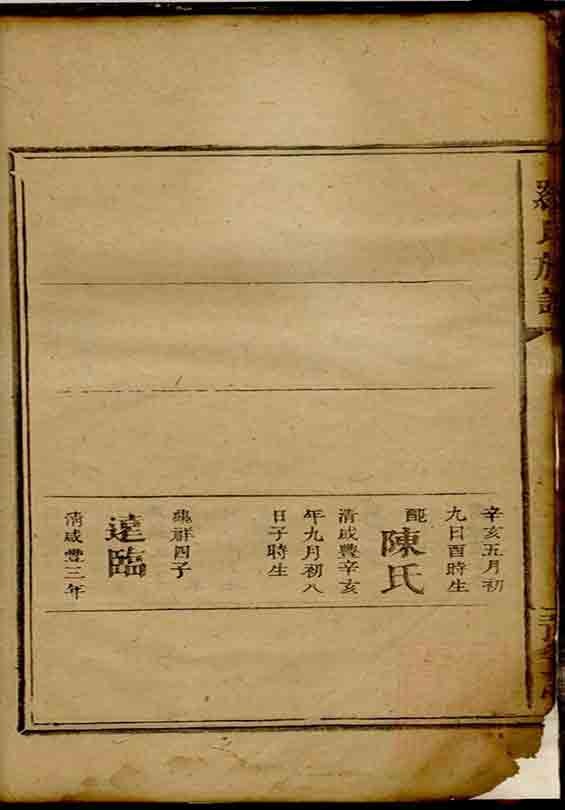 羅氏族譜
辛亥五月初
九日酉時生
配
陳氏
清咸豐辛亥
年九月初八
日子時生
祥四子
遠臨
清咸豐三年